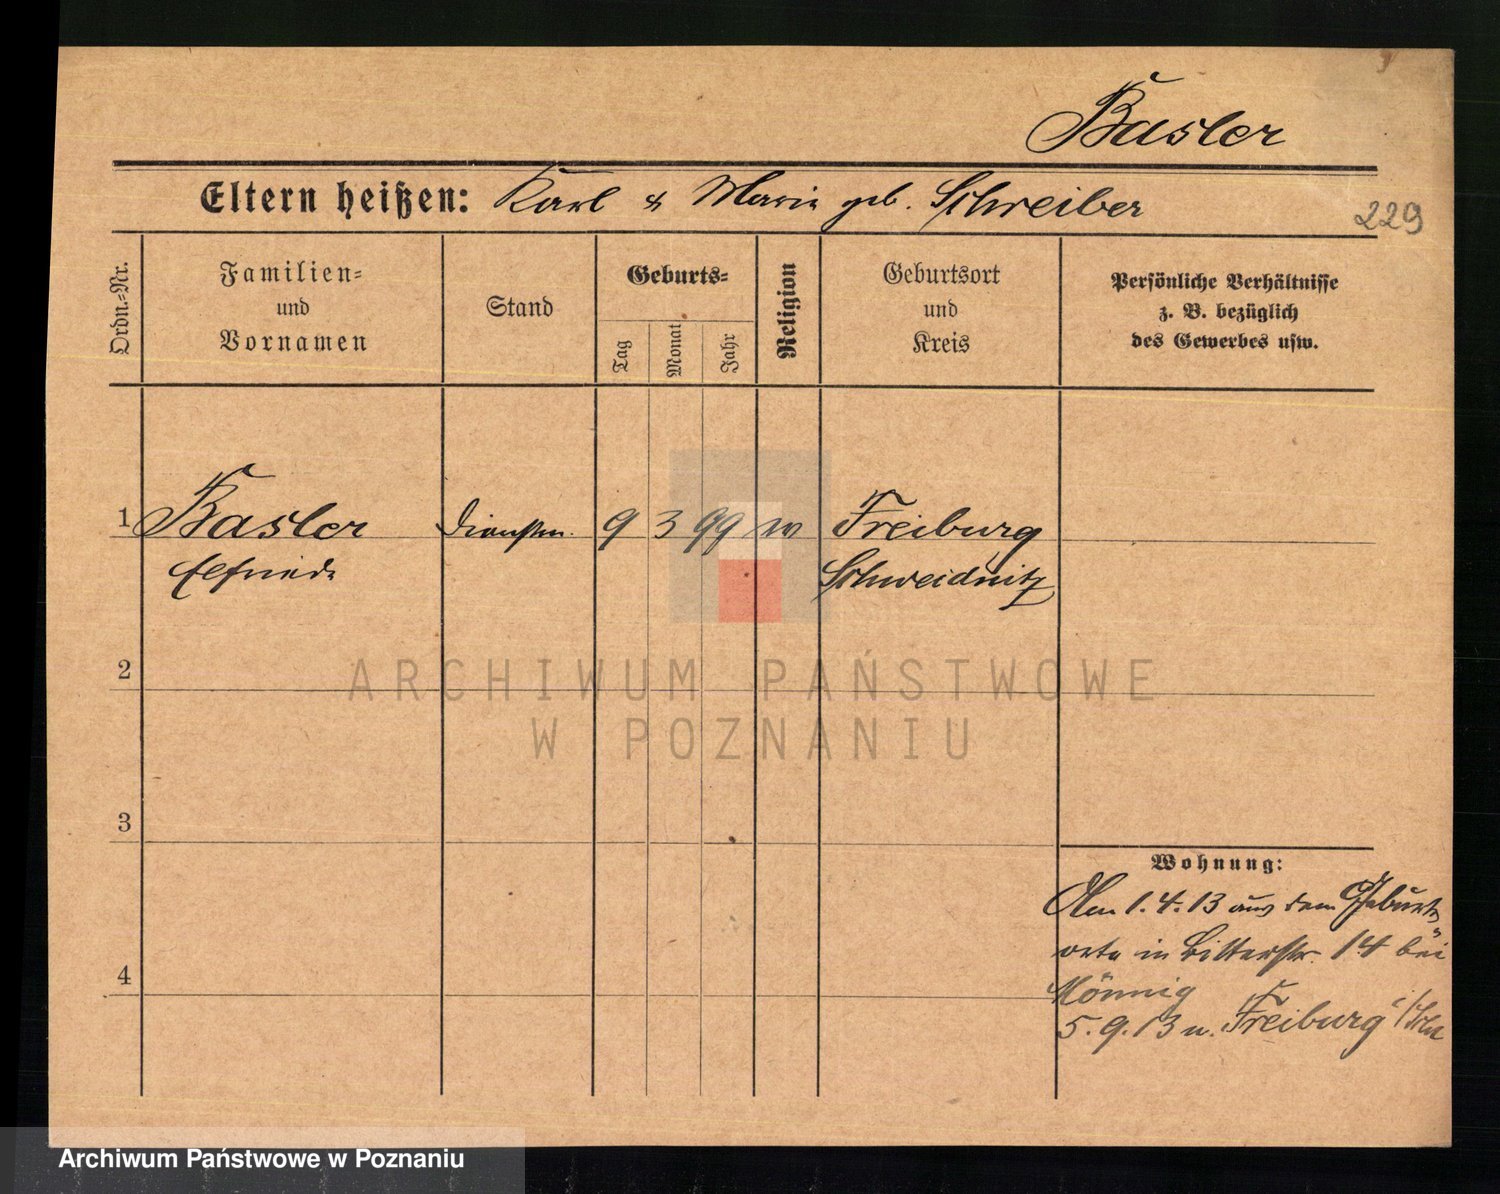 Basler
Eltern heißen: Karl & Marie geb. Schreiber
229
Ordn.=Nr.
Familien=
und
Vornamen
Stand
Geburts=
Tag
Monat
Jahr
Religion
Geburtsort
und
Kreis
Persönliche Verhältnisse
z. B. bezüglich
des Gewerbes usw.
1 Basler Dienstm. 9 3 99 Freiburg
Elfriede Schweidnitz
2
ARCHIWUM PAŃSTWOWE
W POZNANIU
3
Wohnung:
Am 1.4.13 aus dem Geburts
orte in Ritterstr. 14 bei
4
Mönnig
5.9.13 n. Freiburg /Schl
Archiwum Państwowe w Poznaniu